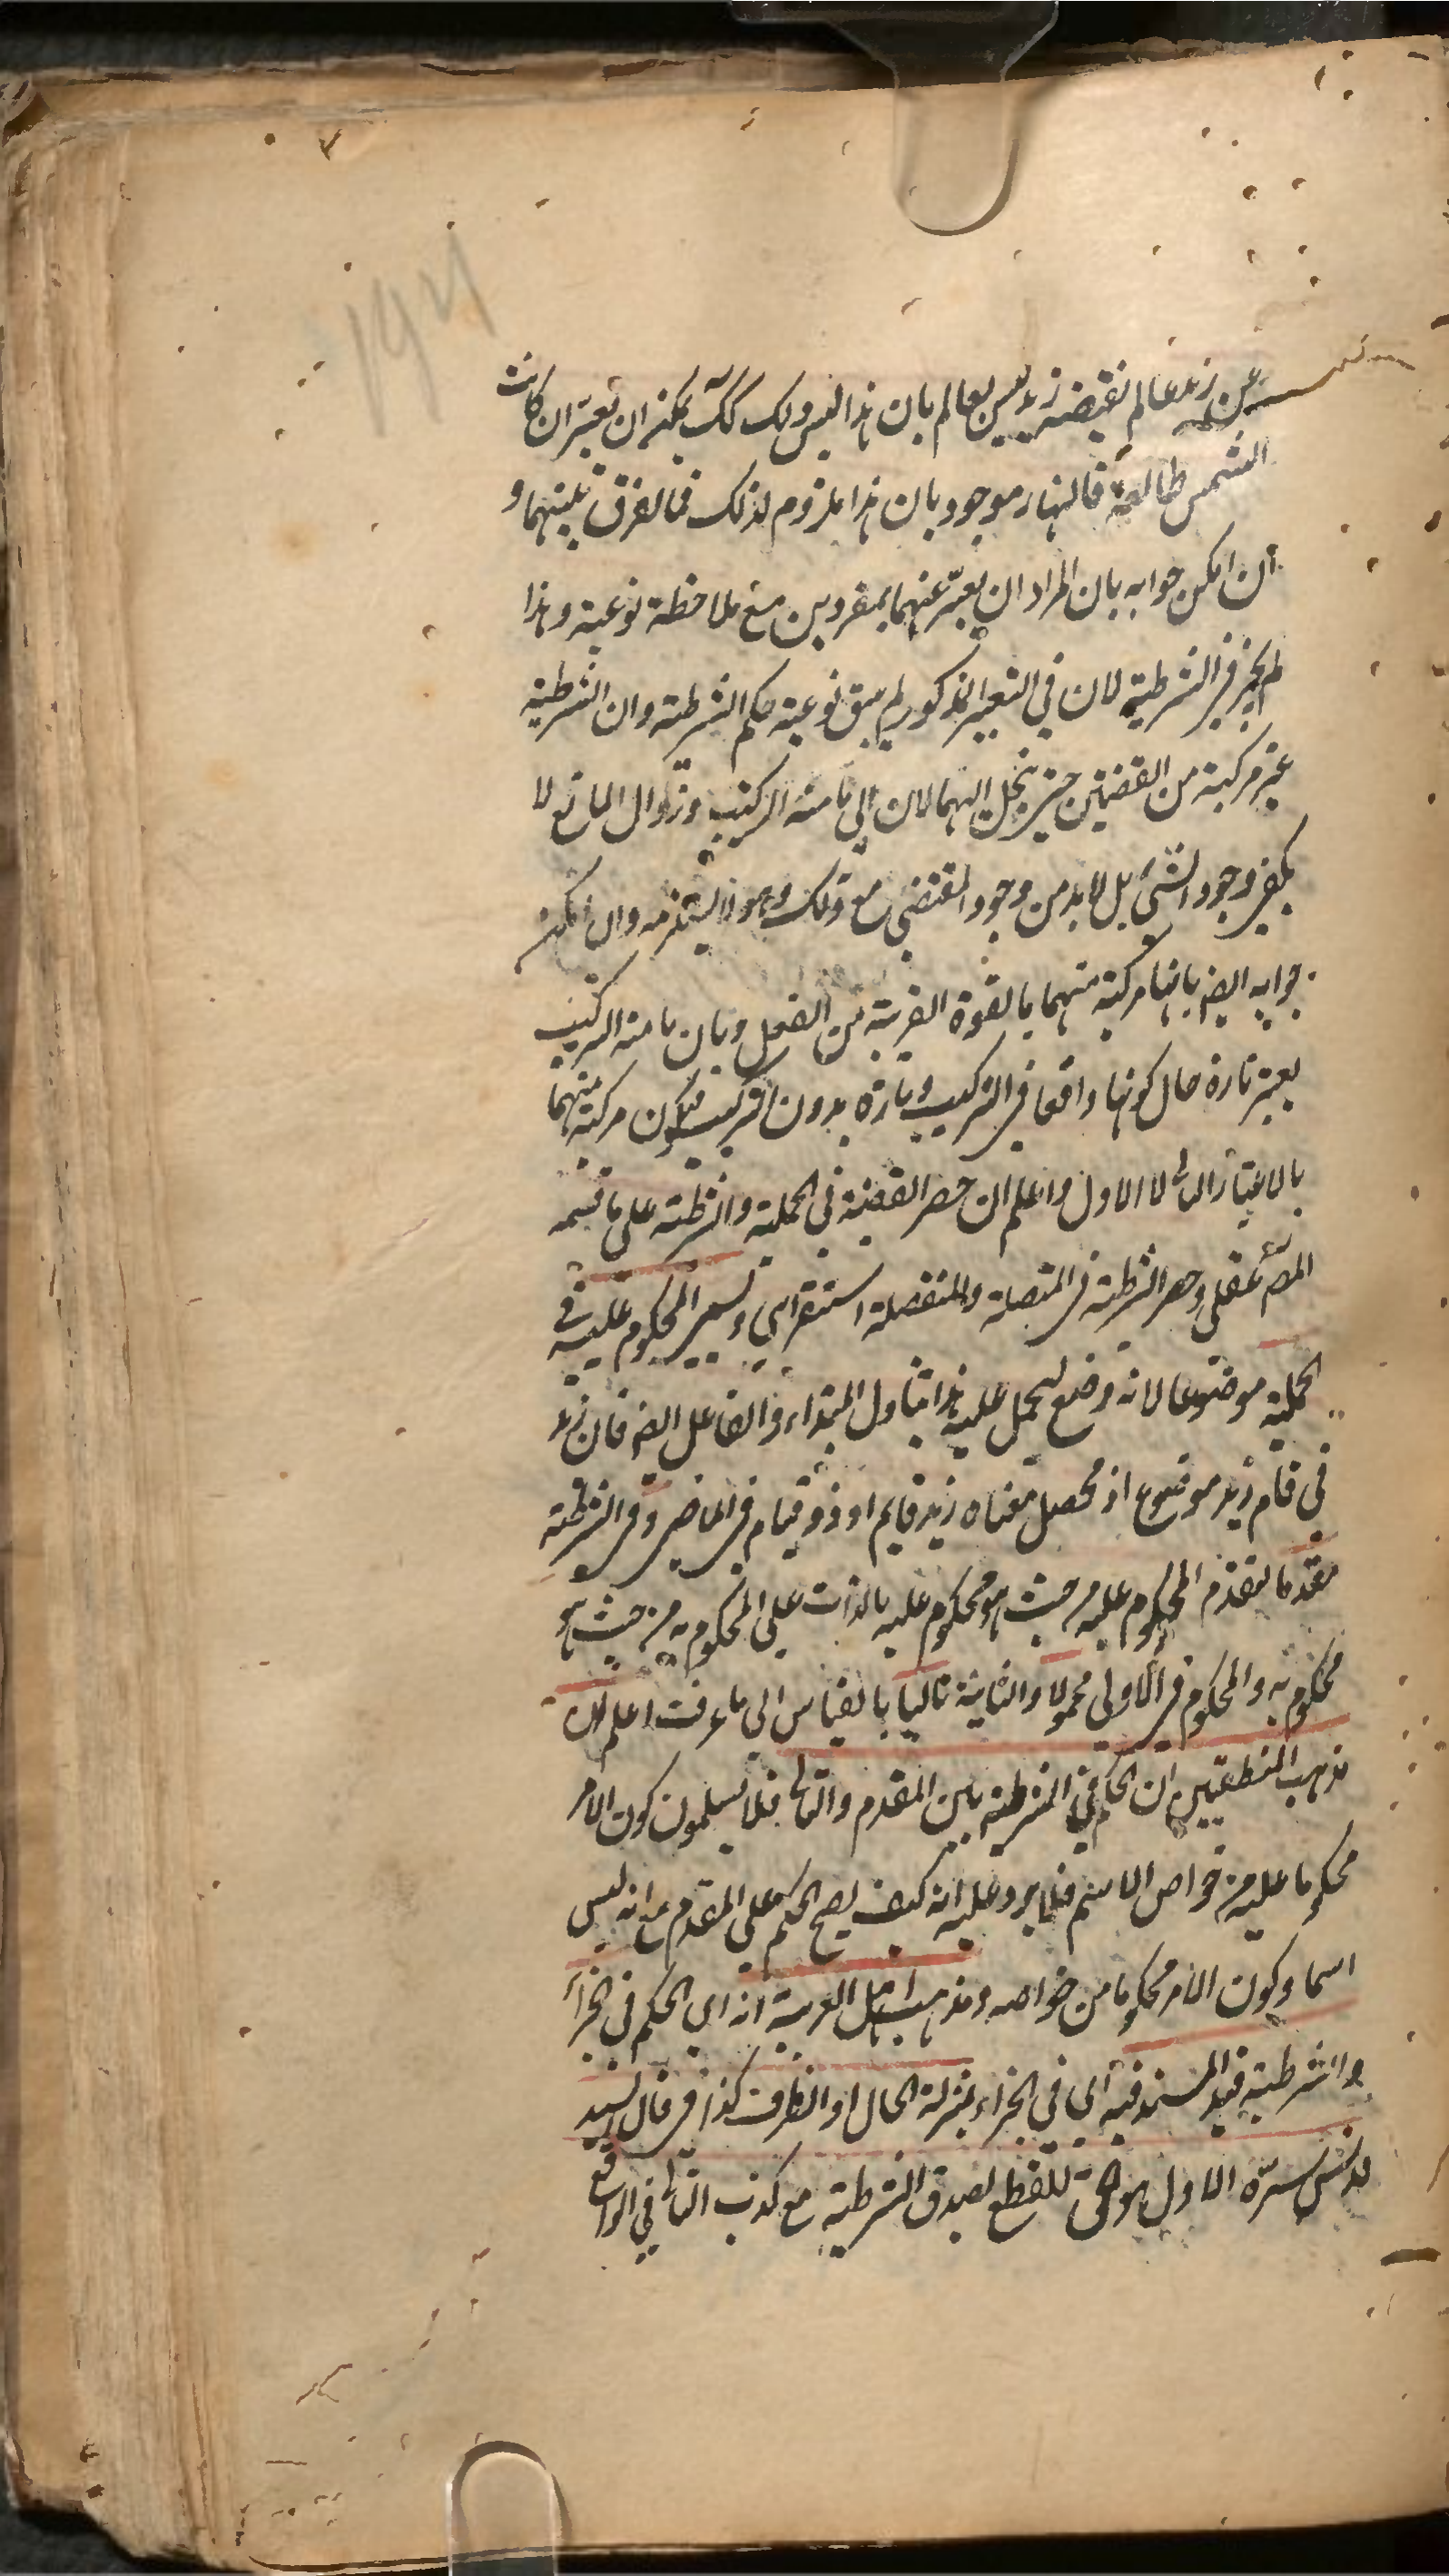 ١٩٢
عن زيد عالم نقيضه زيد ليس بعالم بان هذا ليس ذلك كك يمكن ان تعبر ان كانت
الشمس طالعة فالنهار موجود بان هذا ملزوم لذلك فما الفرق بينهما و
ان امكن جوابه بان المراد ان يعبر عنهما بمفردين مع ملاحظة نوعية وهذا
لم يجز في الشرطية لان في التعبير المذكور لم يبق نوعية حكم الشرطية وان الشرطية
غير مركبة من القضيتين حتى ينحل اليهما لان الى ما منه التركيب وزوال المانع لا
يكفي وجود الشئ بل لا بد من وجود المقتضي مع ذلك وهو لا يستلزمه وان امكن
جوابه ايضا بانها مركبة منهما بالقوة القريبة من الفعل وبان ما منه التركيب
يعتبر تارة حال كونها واقعا في التركيب وتارة بدون التركيب فيكون مركبة منهما
بالاعتبار الثاني لا الاول واعلم ان حصر القضية في الحملية والشرطية على ما قسمه
المص عقلي وحصر الشرطية في المتصلة والمنفصلة استقرائي ويسمى المحكوم عليه في
الحملية موضوعا لانه وضع ليحمل عليه هذا يتناول المبتداء والفاعل ايضا فان زيد
في قام زيد موضوع اذ محصل معناه زيد قايم او ذو قيام في الماضي وفي الشرطية
مقدما لتقدم المحكوم عليه من حيث هو محكوم عليه بالذات على المحكوم به من حيث هو
محكوم به والمحكوم في الاولى محمولا والثانية تاليا بالقياس الى ما عرفت اعلم ان
مذهب المنطقيين ان الحكم في الشرطية بين المقدم والتالى فلا يسلمون كون الامر
محكوما عليه من خواص الاسم فلا يرد عليه انه كيف يصح الحكم على المقدم مع انه ليس
اسما وكون الامر محكوما من خواصه ومذهب اهل العربية انه اي الحكم في الجزاء
والشرطية قيد المسند فيه اي في الجزاء بمنزلة الحال او الظرف كذا في قال السيد
قدس سره الاول هو الحق للقطع بصدق الشرطية مع كذب التالى في الواقع